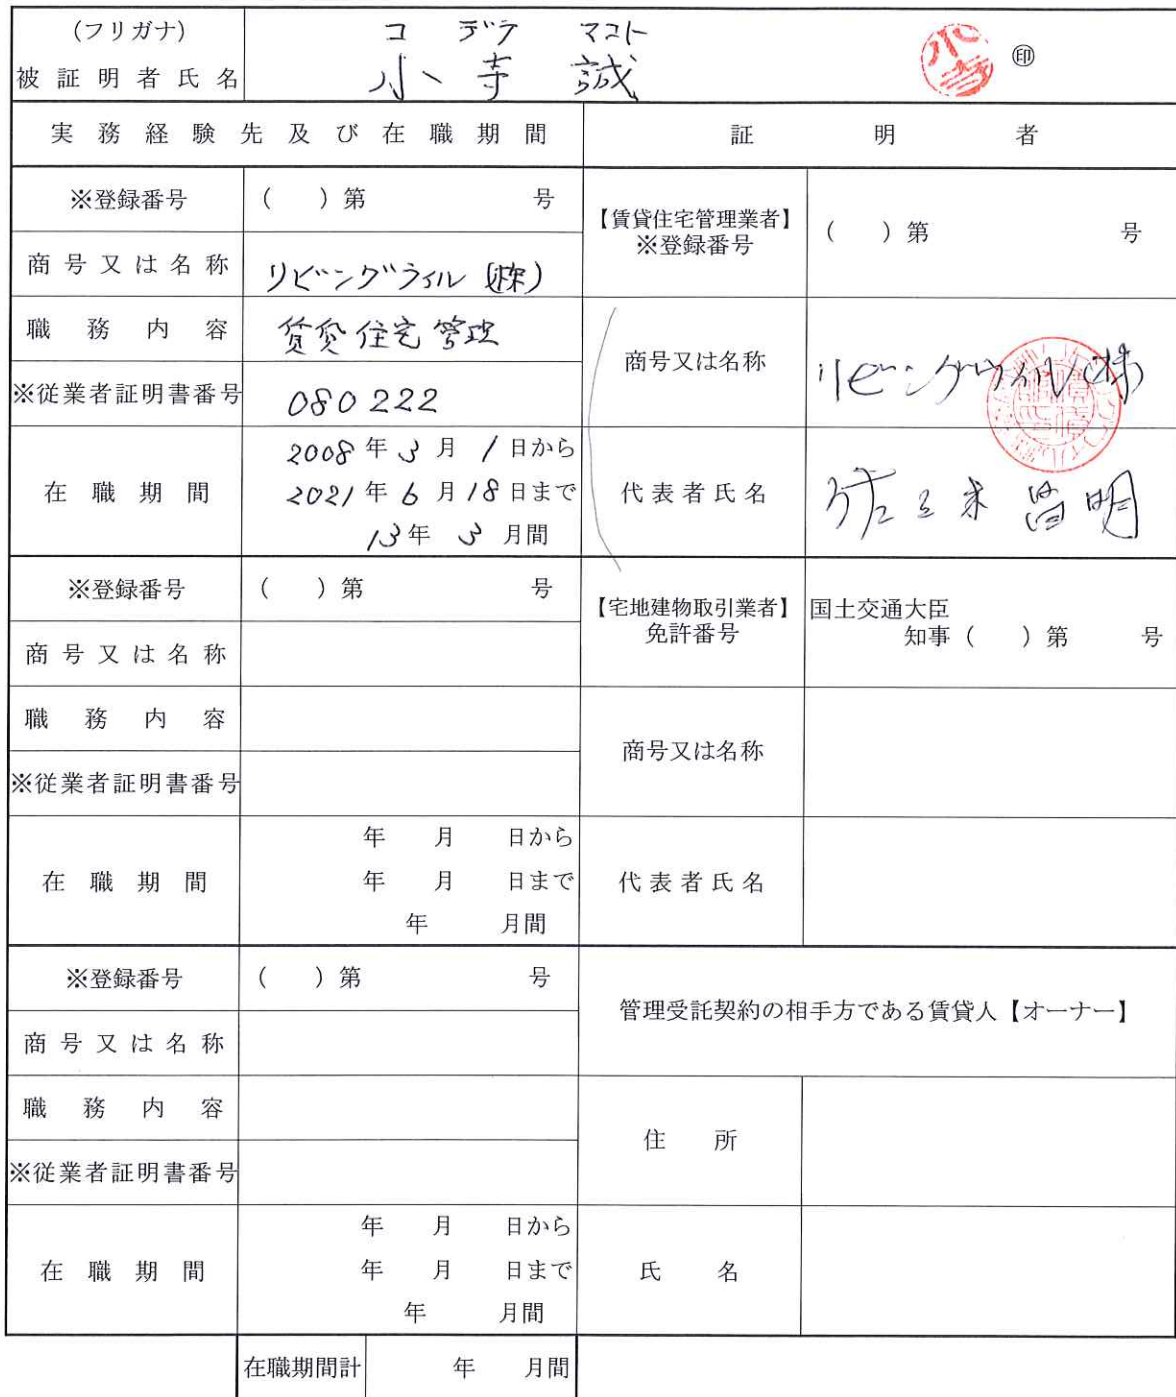 (フリガナ) コデラ マコト
被証明者氏名 小寺 誠 小寺 ㊞
実務経験先及び在職期間 証明者
※登録番号 ( )第 号
【賃貸住宅管理業者】
※登録番号 ( )第 号
商号又は名称 リビングライル(株)
職務内容 賃貸住宅管理
商号又は名称 リビングライル(株)
※従業者証明書番号 080222
在職期間
2008年3月1日から
2021年6月18日まで
13年3月間
代表者氏名
※登録番号 ( )第 号
【宅地建物取引業者】
免許番号
国土交通大臣
知事( )第 号
商号又は名称
職務内容
商号又は名称
※従業者証明書番号
在職期間
年 月 日から
年 月 日まで
年 月間
代表者氏名
※登録番号 ( )第 号
管理受託契約の相手方である賃貸人【オーナー】
商号又は名称
職務内容
住所
※従業者証明書番号
在職期間
年 月 日から
年 月 日まで
年 月間
氏名
在職期間計 年 月間